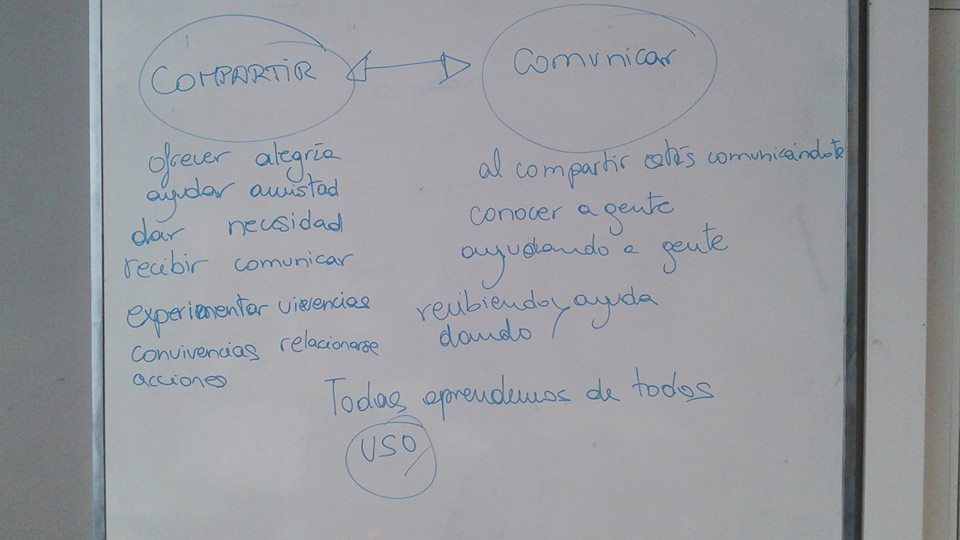 COMPARTIR
ofrecer alegría
ayudar amistad
dar necesidad
recibir comunicar
experimentar vivencias
convivencias relacionarse
acciones
Comunicar
al compartir estás comunicándote
conocer a gente
ayudando a gente
recibiendo ayuda
dando
Todas aprendemos de todos
USO